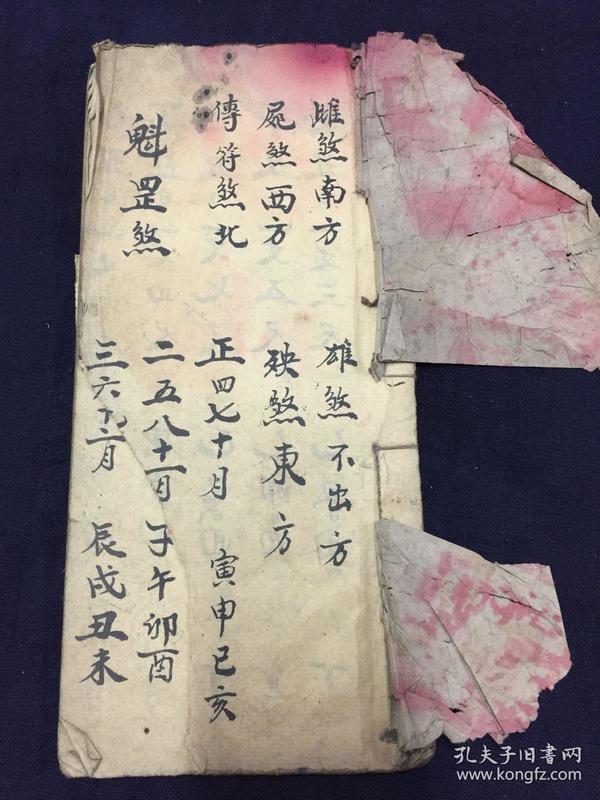 雌煞南方 雄煞不出方
屍煞西方 殃煞東方
傳符煞北 正四七十月 寅申巳亥
魁罡煞 二五八十一月 子午卯酉
三六九十二月 辰戌丑未
孔夫子旧書网
www.kongfz.com